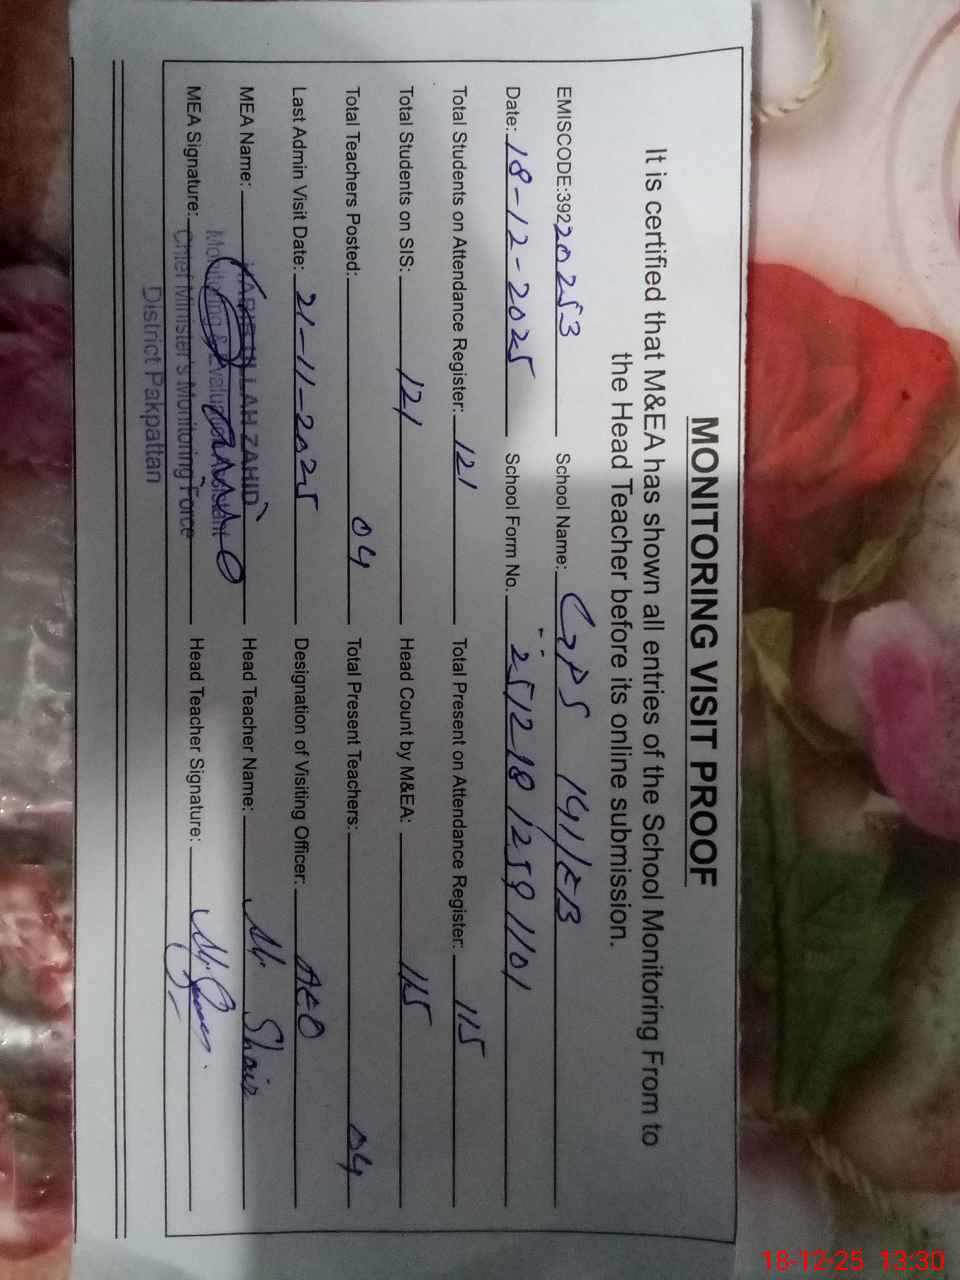 MONITORING VISIT PROOF
It is certified that M&EA has shown all entries of the School Monitoring From to
the Head Teacher before its online submission.
EMISCODE:39220253 School Name: GPS 141/EB
Date: 18-12-2025 School Form No. 25121812591101
Total Students on Attendance Register: 121 Total Present on Attendance Register: 115
Total Students on SIS: 121 Head Count by M&EA: 115
Total Teachers Posted: 04 Total Present Teachers: 04
Last Admin Visit Date: 21-11-2025 Designation of Visiting Officer: AEO
MEA Name: ZAHID Head Teacher Name: M. Shair
Monitoring &
MEA Signature: Chief Minister's Monitoring Force Head Teacher Signature:
District Pakpattan
18-12-25 13:30